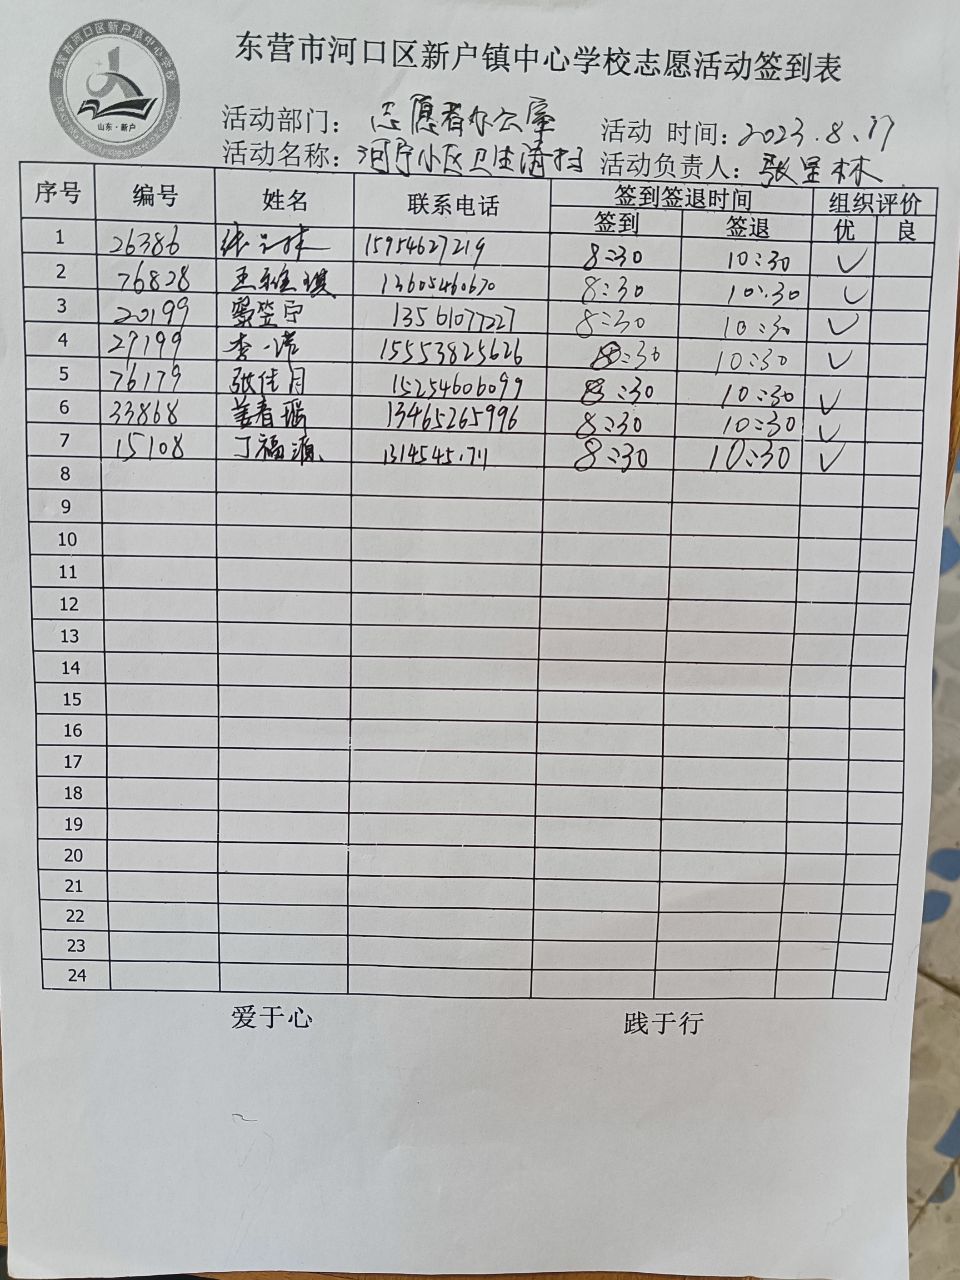 东营市河口区新户镇中心学校志愿活动签到表
山东·新户
活动部门： 志愿者办公室 活动 时间：2023.8.17
活动名称： 河宁小区卫生清扫 活动负责人：张呈林
序号 编号 姓名 联系电话 签到签退时间 组织评价
签到 签退 优 良
1 26386 15954627219 8:30 10:30 ✓
2 76828 王维琪 13605460670 8:30 10:30 ✓
3 20199 宁 13561077227 8:30 10:30 ✓
4 27199 李一诺 15553825626 8:30 10:30 ✓
5 76179 张佳月 15254606099 8:30 10:30 ✓
6 33868 姜春瑶 13465265996 8:30 10:30 ✓
7 15108 丁福源 8:30 10:30 ✓
8
9
10
11
12
13
14
15
16
17
18
19
20
21
22
23
24
爱于心 践于行